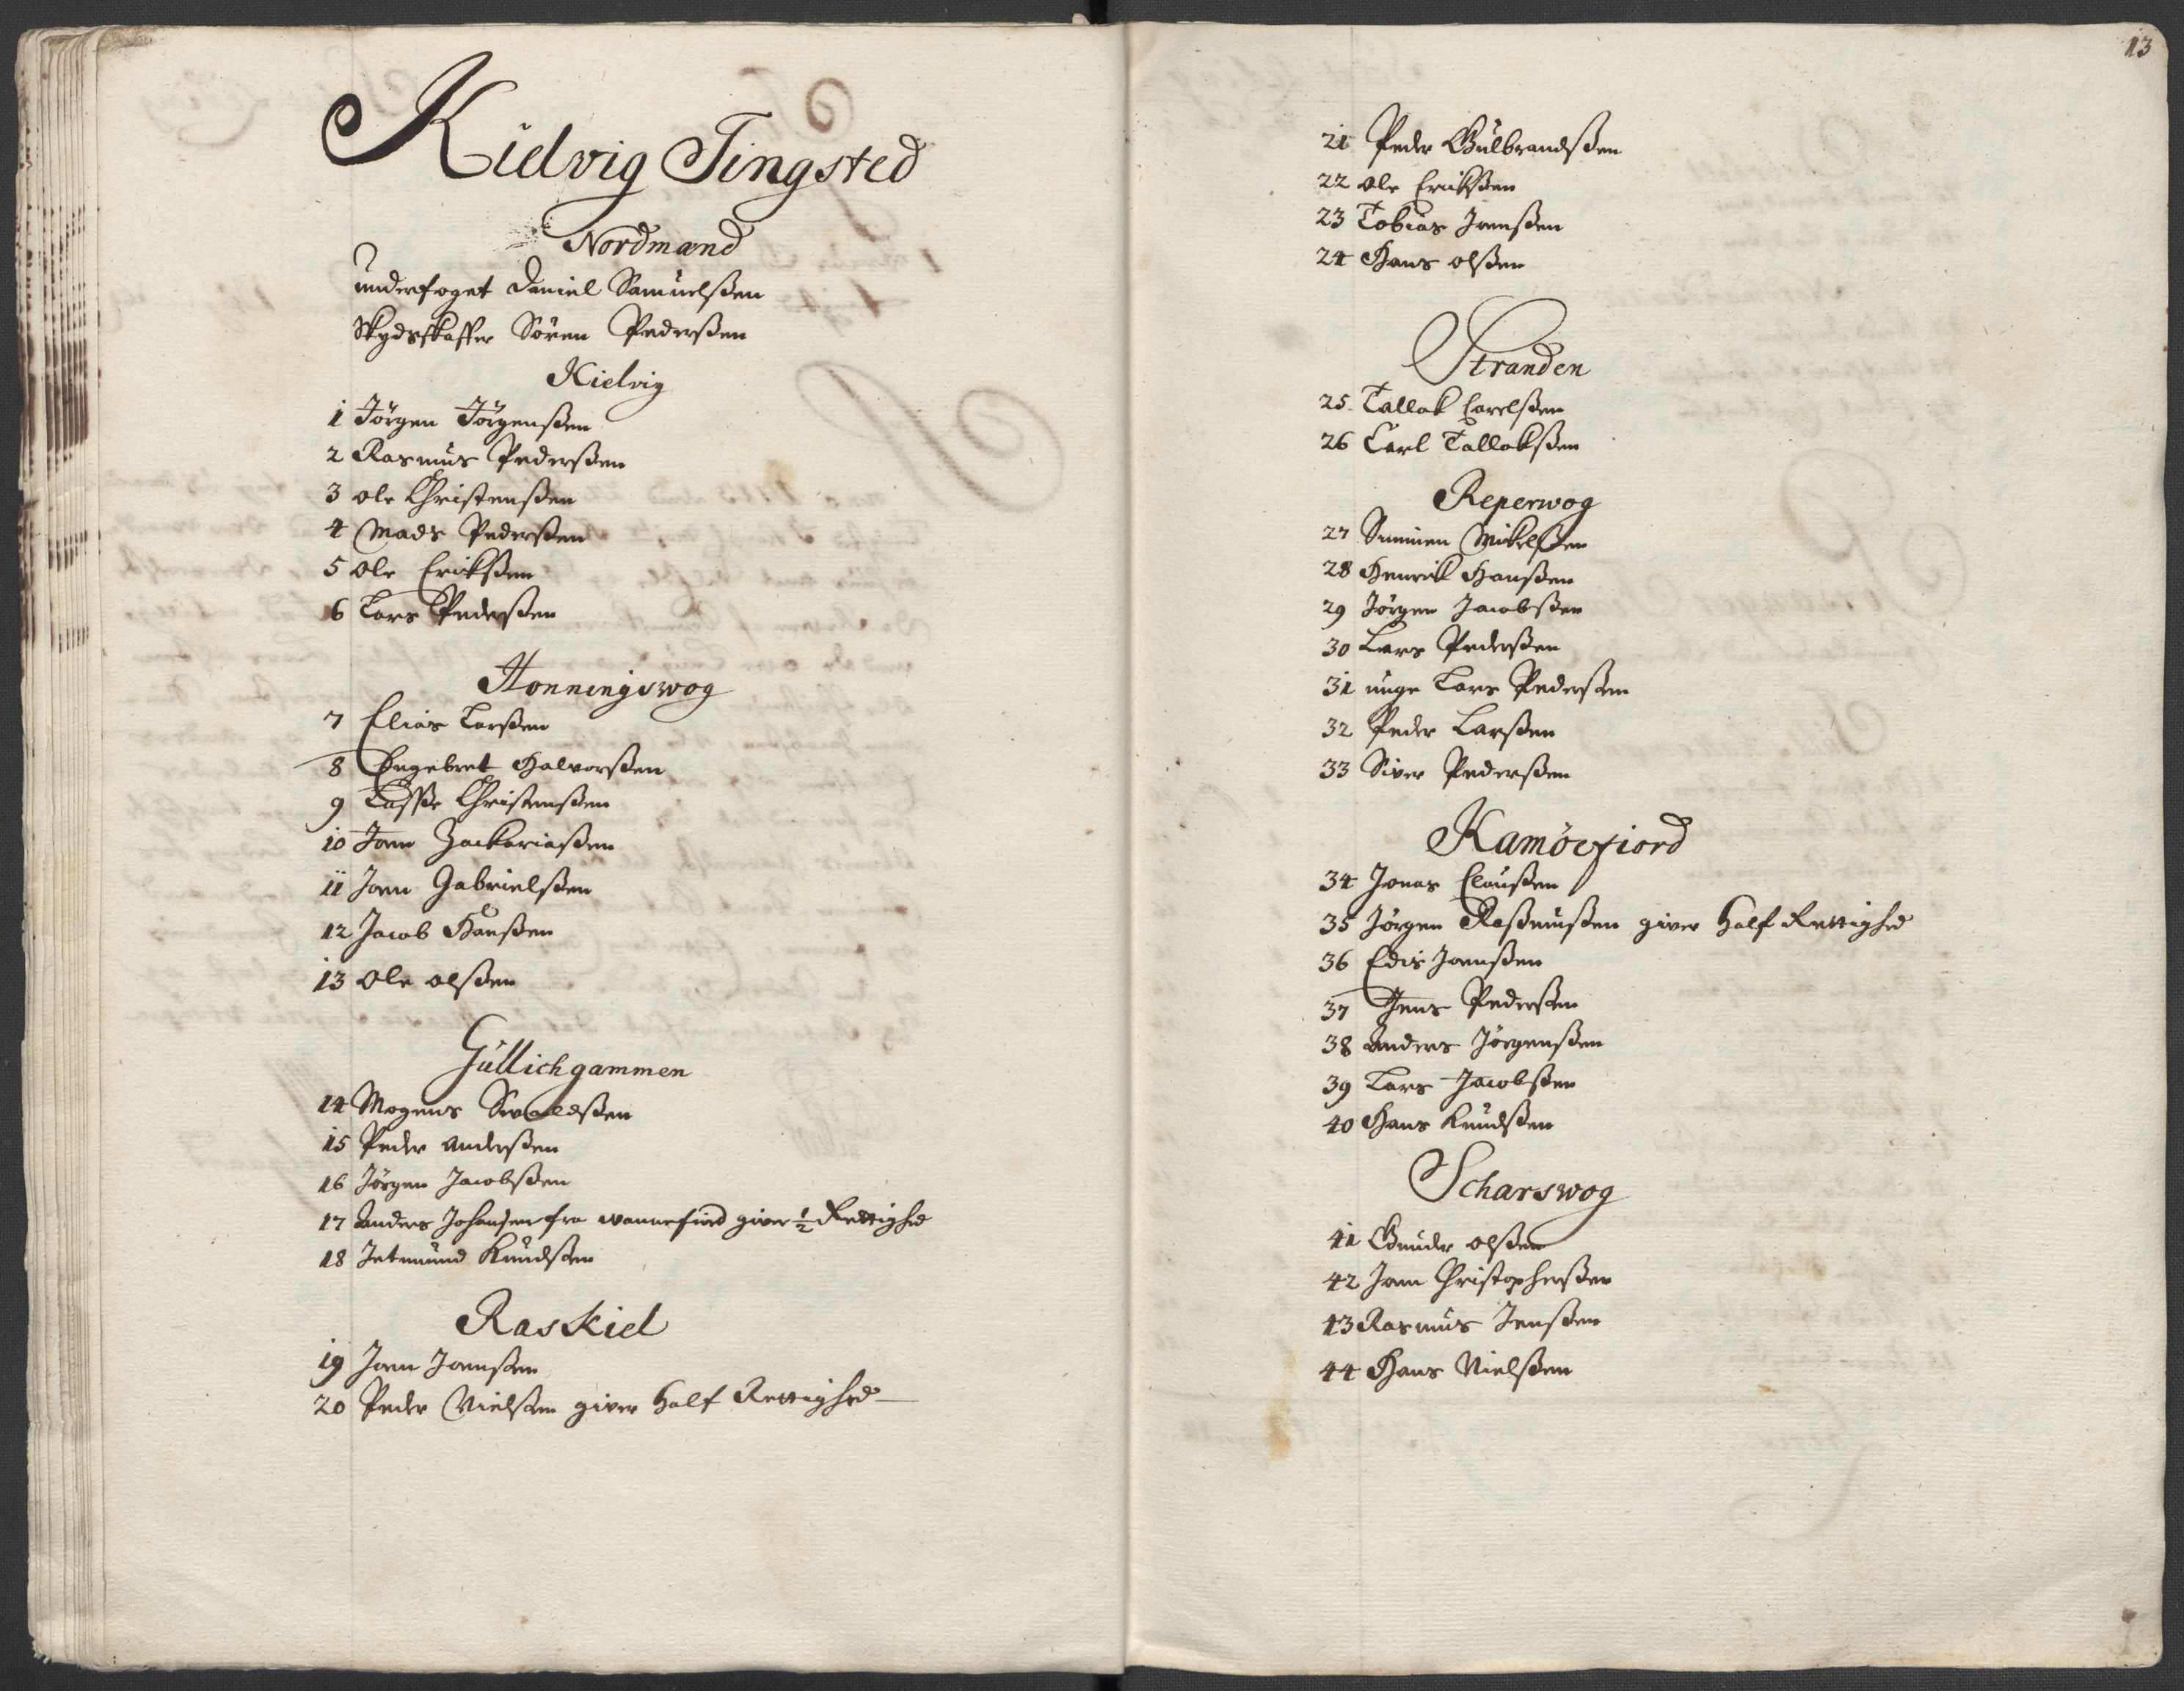 Kielvig Tingsted
Nordmænd
underfoget Daniel Samuelßen
Skydsskaffer Sören Pederßen
Kielvig
1 Jörgen Jörgenßen
2 Rasmus Pederßen
3 ole Christenßen
4 Mads Pederßen
5 ole Erickßen
6 Lars Pederßen
Honningswog
7 Elias Larßen
8 Engebret Halvorßen
9 Laßße Christenßen
10 Joen Zackariaßen
11 Joen Gabrielßen
12 Jacob Hanßen
13 Ole olßen
Güllichgammen
14 Mogens Sivaldßen
15 Peder Anderßen
16 Jörgen Jacobßen
17 Anders Johansen fra wannefiord giver ½ Rettighed
18 Jetmund Knudßen
Raskiel
19 Joen Joenßen
20 Peder Nielßen giver half Rettighed
13
21 Peder Gulbrandßen
22 ole Erickßen
23 Tobias Joenßen
24 Hans olßen
Stranden
25 Tallak Carelßen
26 Carl Tallakßen
Reperwog
27 Simmen Mickelßen
28 Henrick Hanßen
29 Jörgen Jacobßen
30 Lars Pederßen
31 unge Lars Pederßen
32 Peder Larßen
33 Siver Pederßen
Kamöefiord
34 Jonas Claußen
35 Jörgen Raßmußen giver half Rettighed
36 Edis Joenßen
37 Jens Pederßen
38 Anders Jörgenßen
39 Lars Jacobßen
40 Hans Knudßen
Scharswog
41 Gunder olßen
42 Joen Christopherßen
43 Rasmus Jenßen
44 Hans Nielßen